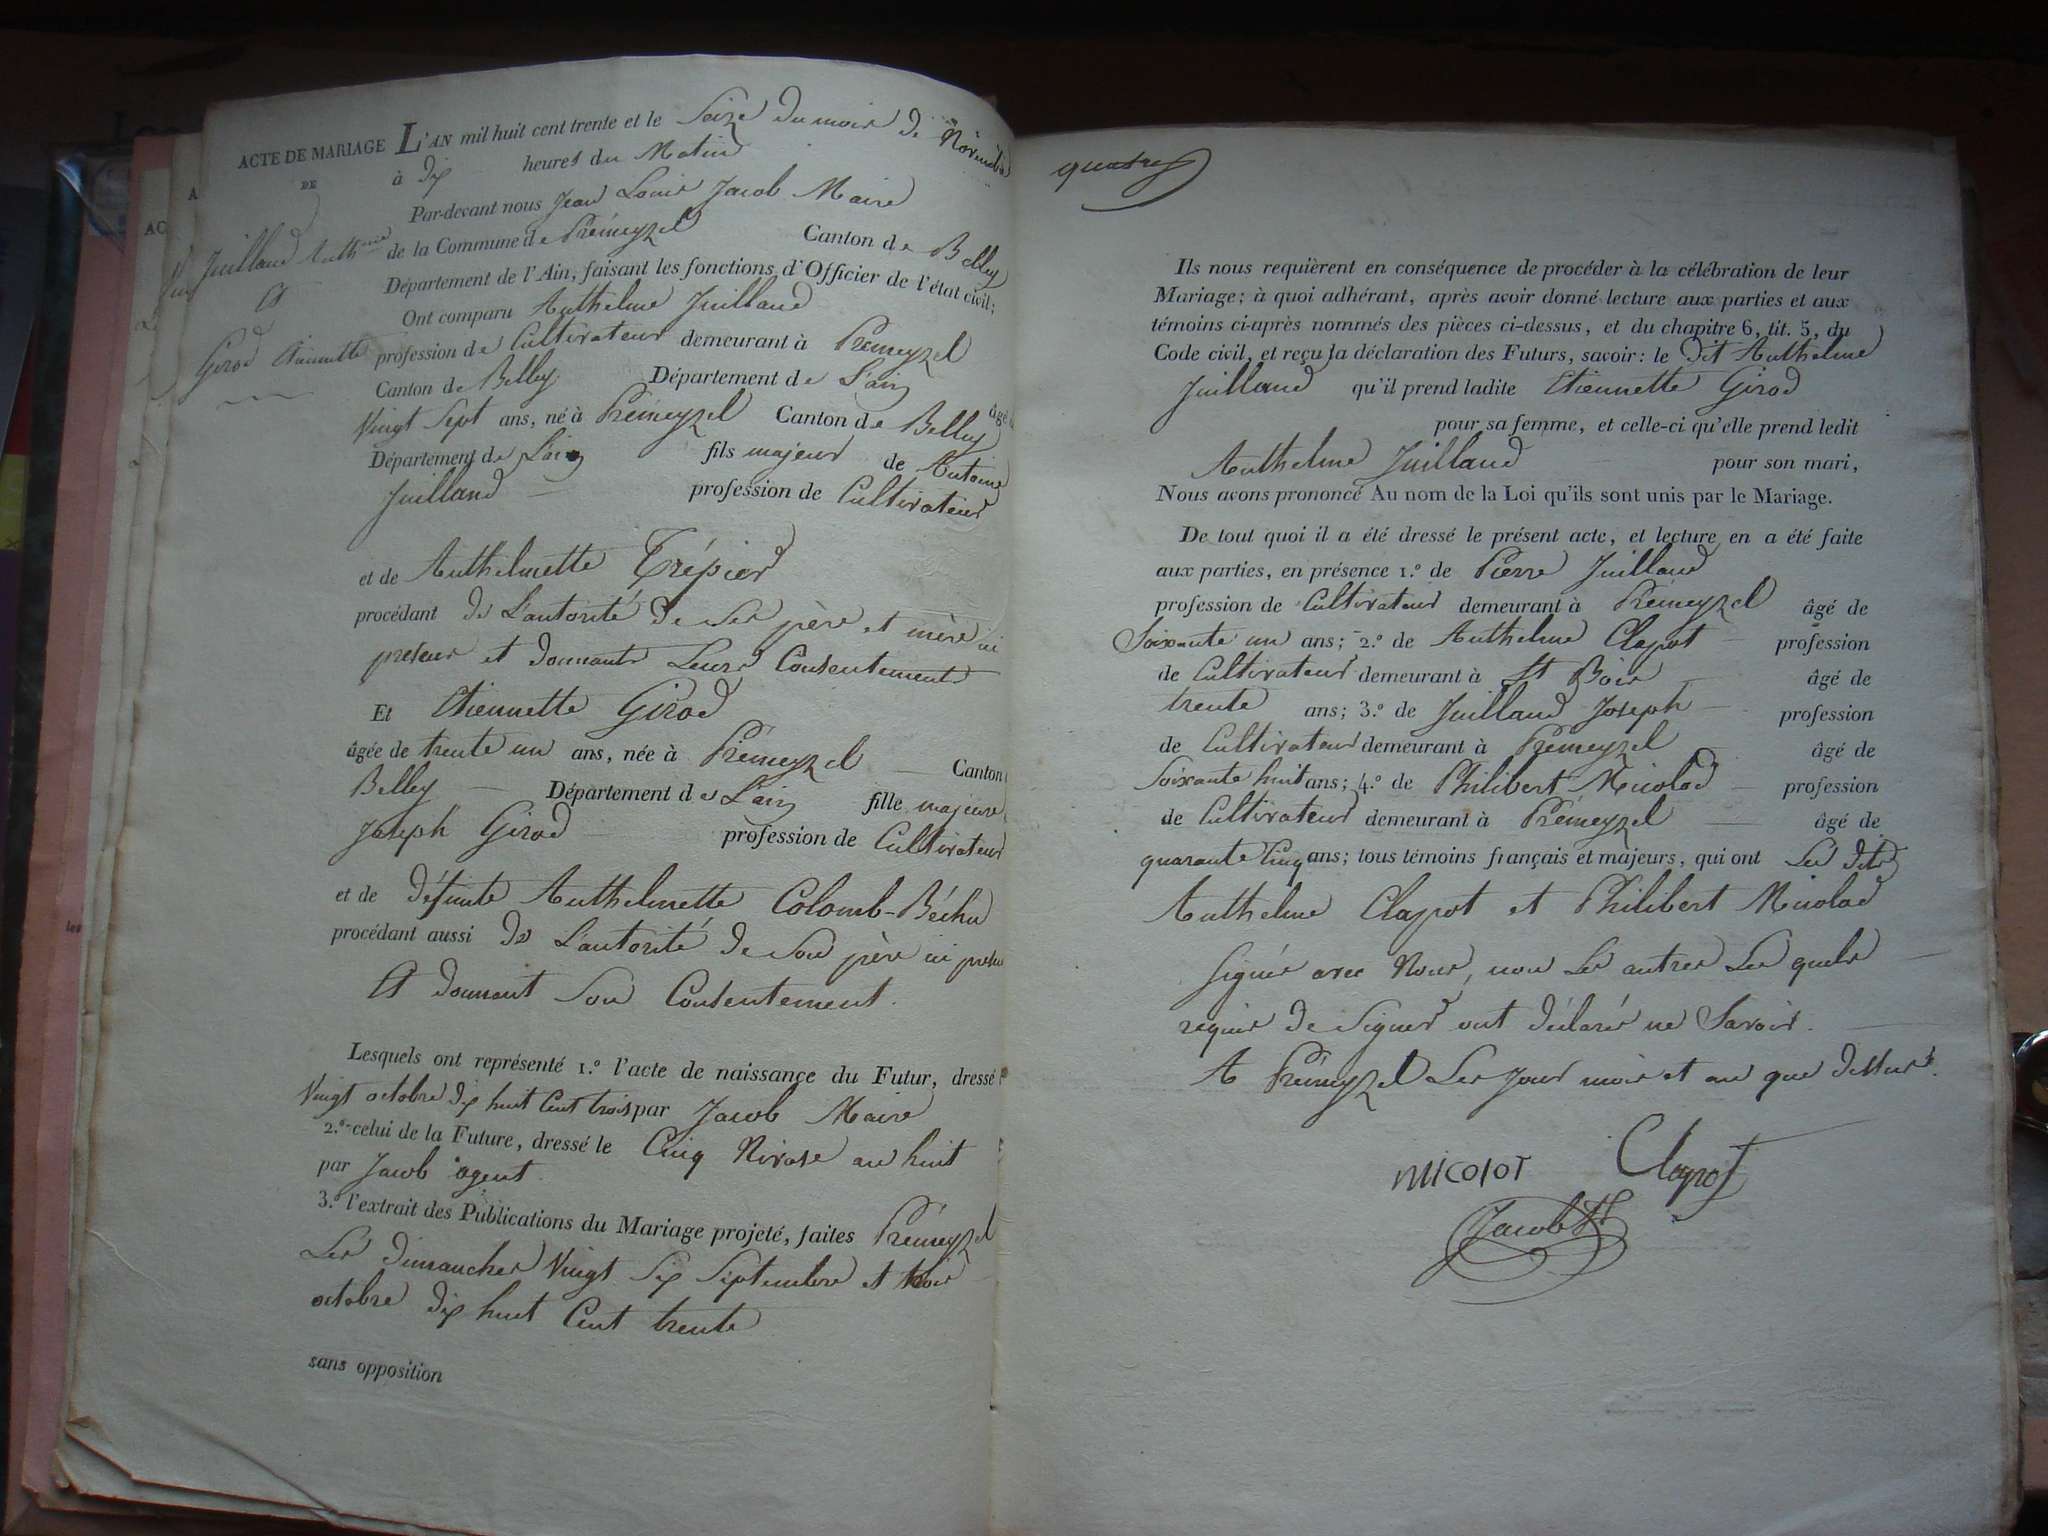 ACTE DE MARIAGE L'AN mil huit cent trente et le Seize du mois de Novembre
DE à dix heures du Matin
Par-devant nous Jean Louis Jacob Maire
Juilland Anthme de la Commune de Prémeyzel Canton de Belley
Et Département de l'Ain, faisant les fonctions d'Officier de l'état civil;
Ont comparu Anthelme Juilland
Girod Etiennette profession de Cultivateur demeurant à Prémeyzel
Canton de Belley Département de L'ain âgé de
Vingt Sept ans, né à Prémeyzel Canton de Belley
Département de L'ain fils majeur de Antoine
Juilland profession de Cultivateur
et de Anthelmette Trépier
procédant de L'autorité de Ses père et mère ici
présens et donnants Leurs Consentements
Et Etiennette Girod
âgée de trente un ans, née à Prémeyzel Canton
Belley Département de L'ain fille majeure
Joseph Girod profession de Cultivateur
et de défunte Anthelmette Colomb-Béchu
procédant aussi de L'autorité de Son père ici présen
Et donnant Son Consentement.
Lesquels ont représenté 1.º l'acte de naissance du Futur, dressé
Vingt octobre dix huit Cent trois par Jacob Maire
2.º celui de la Future, dressé le Cinq Nivose an huit
par Jacob agent.
3.º l'extrait des Publications du Mariage projeté, faites Prémeyzel
Les dimanches Vingt Six Septembre et trois
octobre dix huit Cent trente
sans opposition
quatre
Ils nous requièrent en conséquence de procéder à la célébration de leur
Mariage; à quoi adhérant, après avoir donné lecture aux parties et aux
témoins ci-après nommés des pièces ci-dessus, et du chapitre 6, tit. 5, du
Code civil, et reçu la déclaration des Futurs, savoir: le dit Anthelme
Juilland qu'il prend ladite Etiennette Girod
pour sa femme, et celle-ci qu'elle prend ledit
Anthelme Juilland pour son mari,
Nous avons prononcé Au nom de la Loi qu'ils sont unis par le Mariage.
De tout quoi il a été dressé le présent acte, et lecture en a été faite
aux parties, en présence 1.º de Pierre Juilland
profession de Cultivateur demeurant à Prémeyzel âgé de
Soixante un ans; 2.º de Anthelme Clapot profession
de Cultivateur demeurant à St Bois âgé de
trente ans; 3.º de Juilland Joseph profession
de Cultivateur demeurant à Prémeyzel âgé de
Soixante huit ans; 4.º de Philibert Micolod profession
de Cultivateur demeurant à Prémeyzel âgé de
quarante Cinq ans; tous témoins français et majeurs, qui ont Les dits
Anthelme Clapot et Philibert Micolod
Signés avec Nous, non Les autres Les quels
requis de Signer ont déclarés ne Savoir.
A Prémeyzel Les jour mois et an que dessus.
MICOLOT Clapot
Jacob